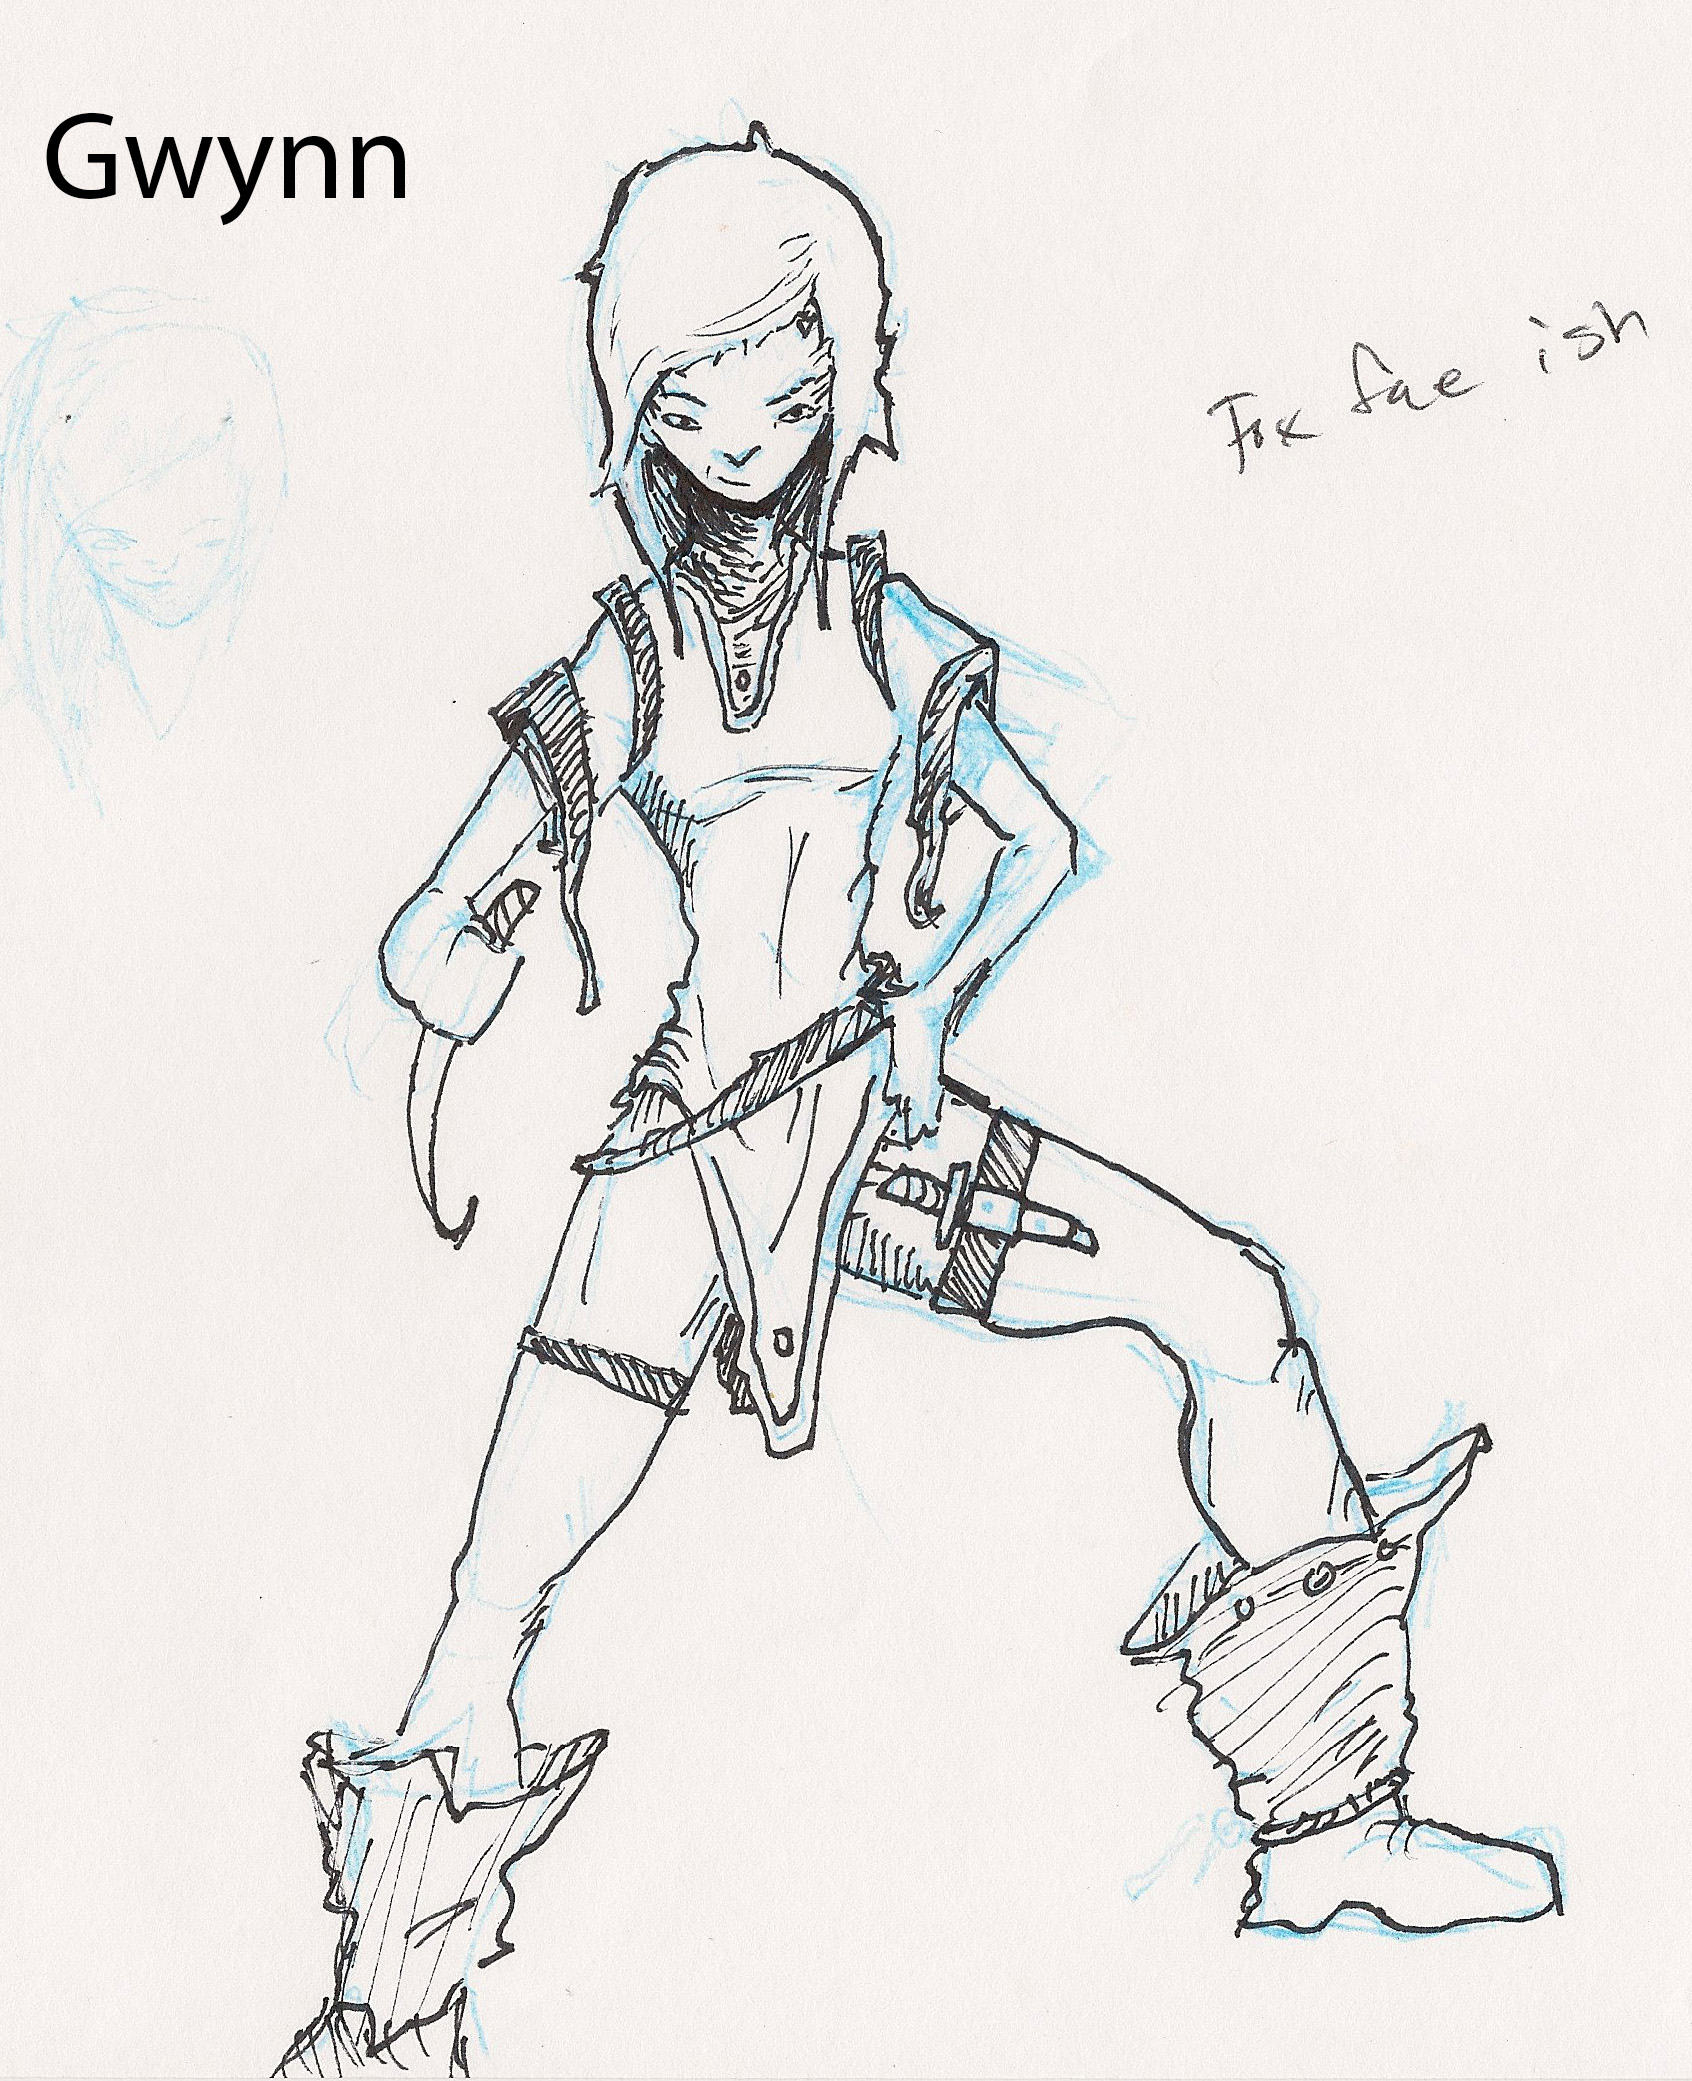 Gwynn
Fox fae ish